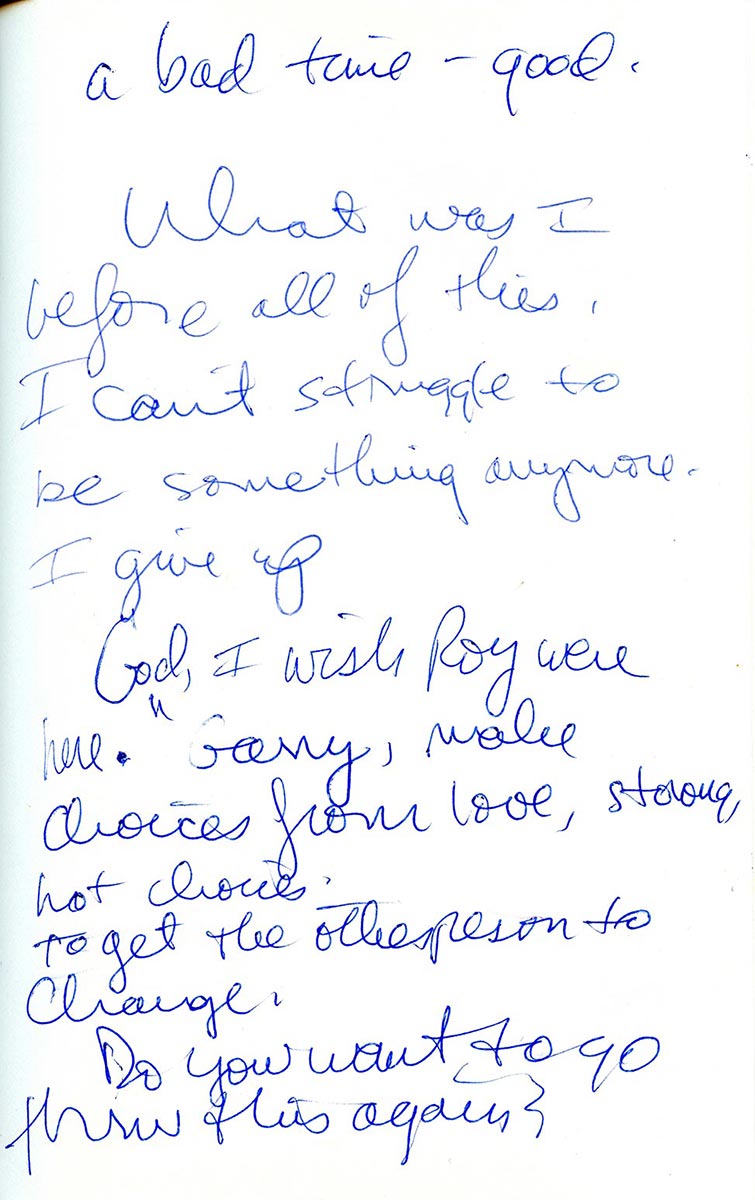 a bad time - good.
What was I
before all of this.
I can't struggle to
be something anymore.
I give up
God, I wish Roy were
here. "Garry, make
choices from love, strong,
hot choices.
to get the other person to
change.
Do you want to go
thru this again?